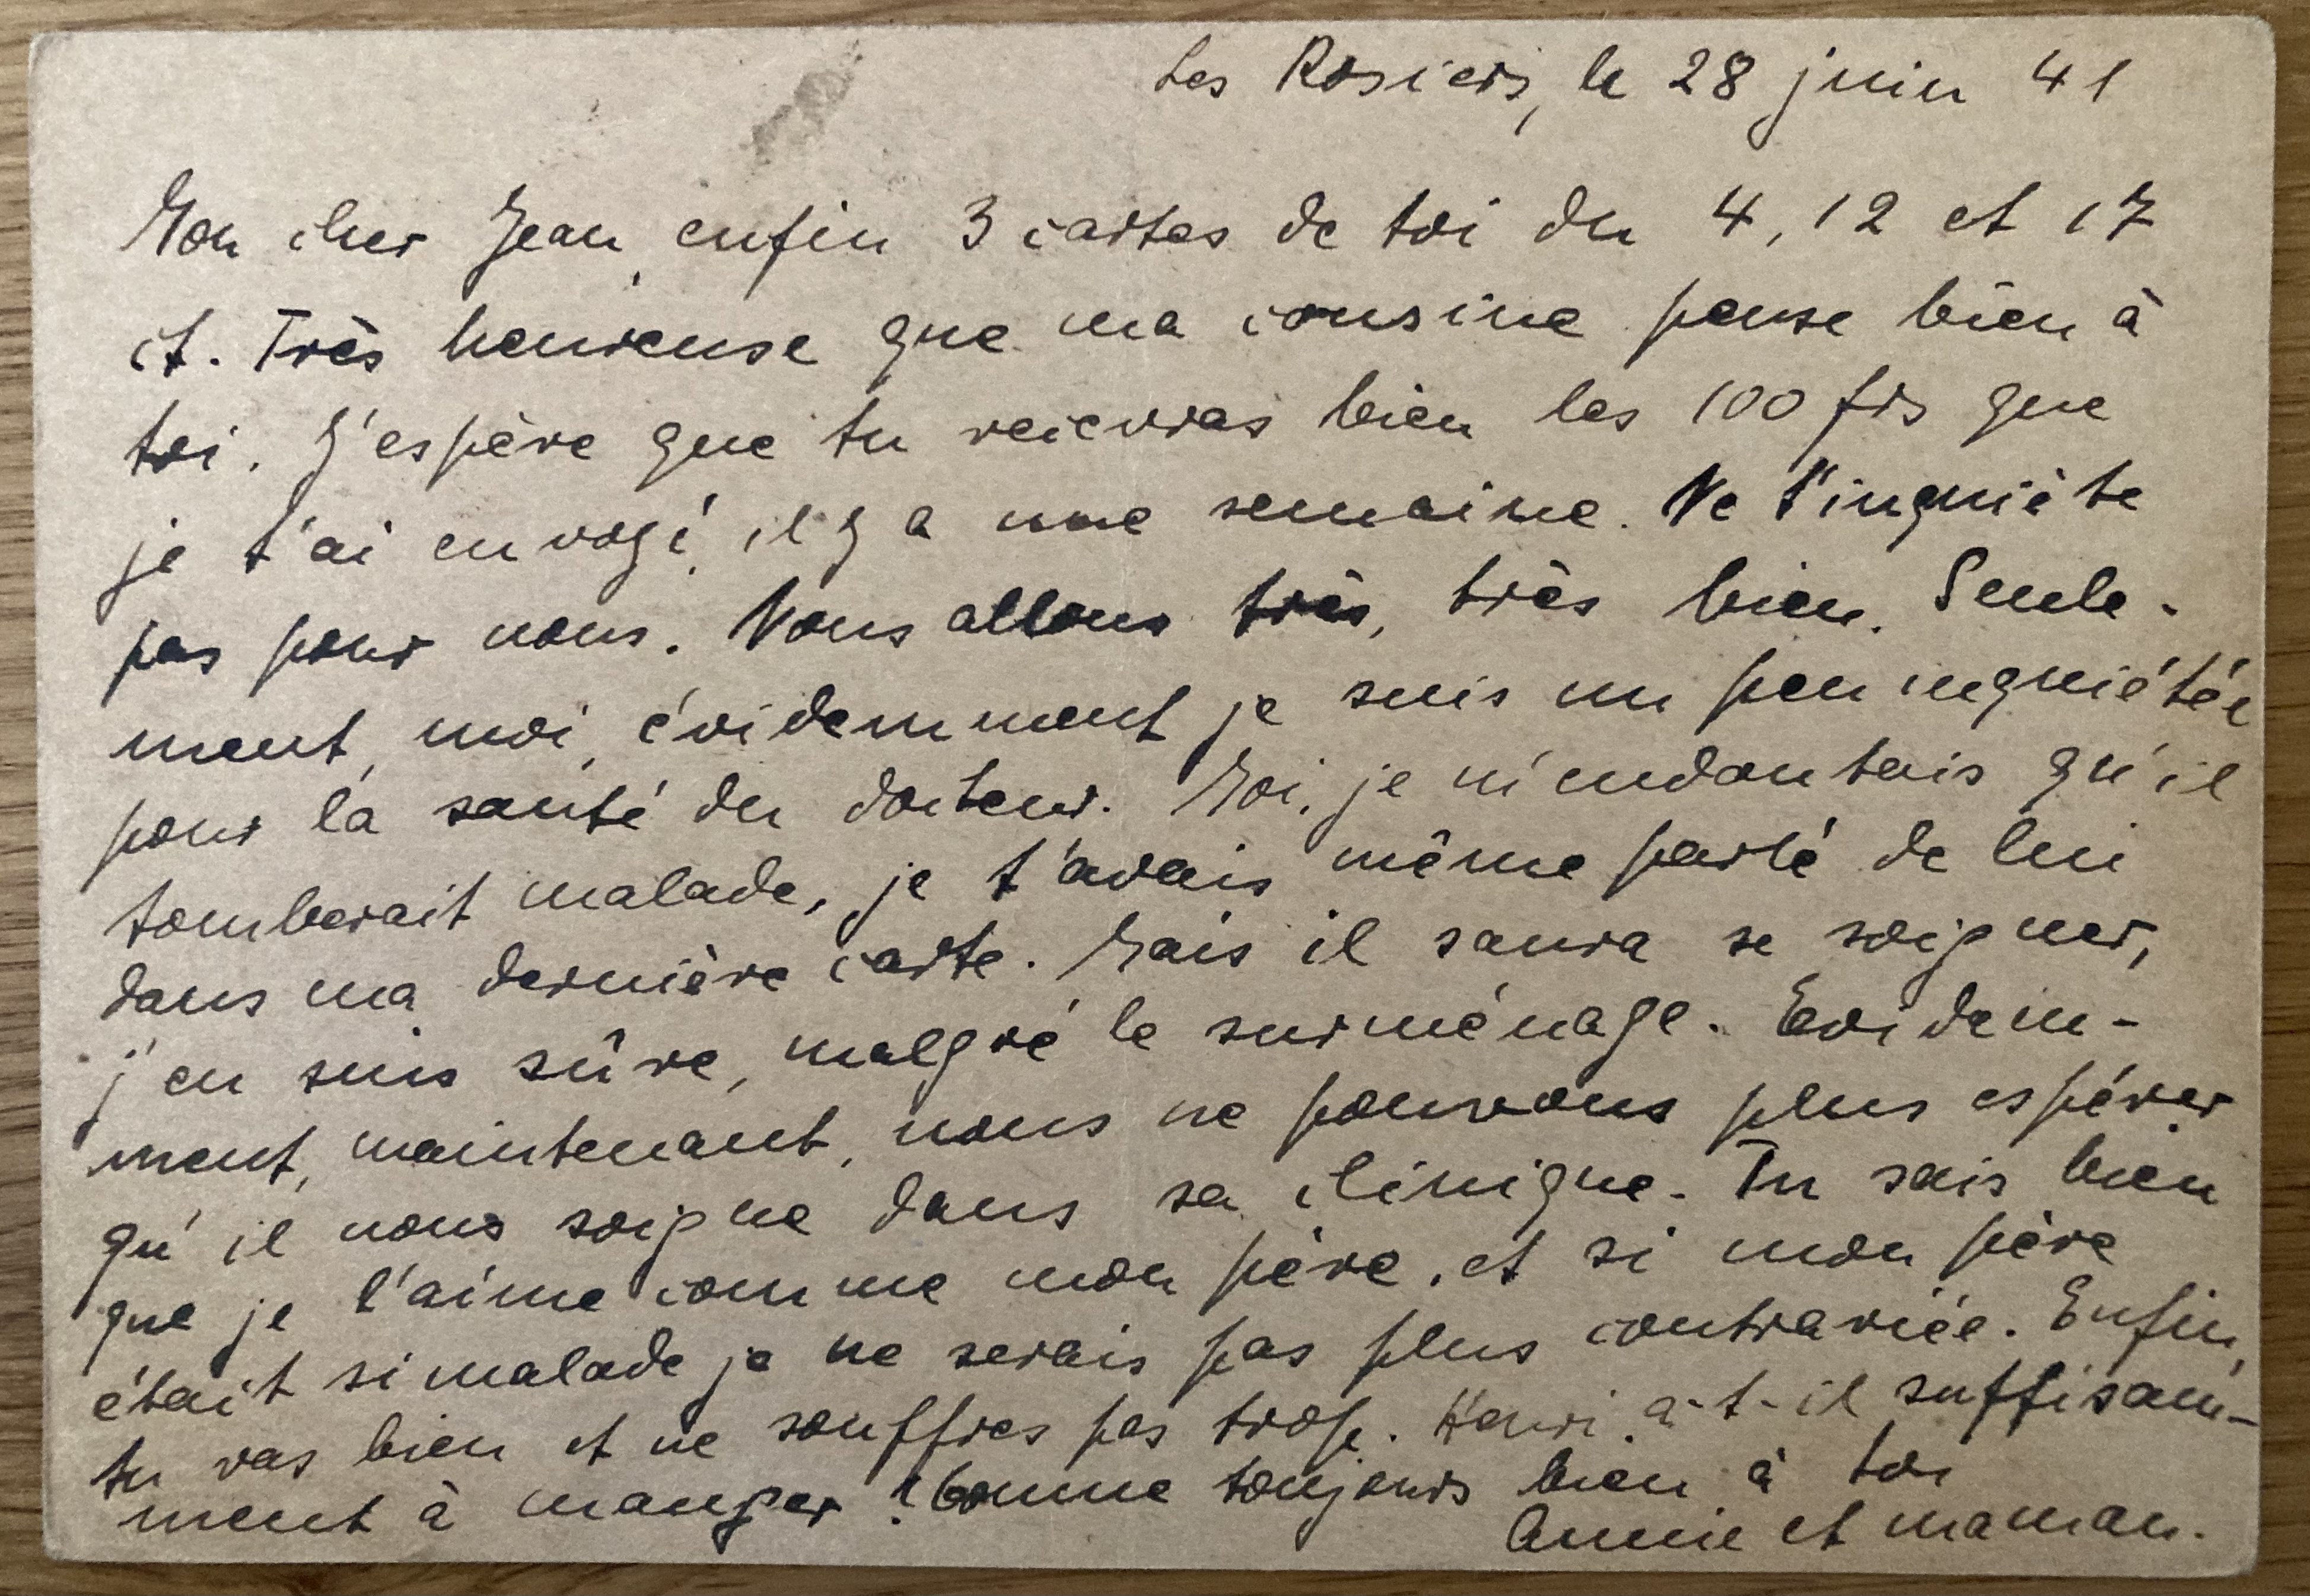 Les Rosiers, le 28 juin 41
Mon cher Jean, enfin 3 cartes de toi du 4, 12 et 17
ct. Très heureuse que ma cousine pense bien à
toi. J'espère que tu recevras bien les 100 frs que
je t'ai envoyé, il y a une semaine. Ne t'inquiète
pas pour nous. Nous allons très, très bien. Seule-
ment, moi, évidemment je suis un peu inquiétée
pour la santé du docteur. Moi, je m'en doutais qu'il
tomberait malade, je t'avais même parlé de lui
dans ma dernière carte. Mais il saura se soigner,
j'en suis sûre, malgré le surménage. Evidem-
ment, maintenant, nous ne pouvons plus espérer
qu'il nous soigne dans sa clinique. Tu sais bien
que je l'aime comme mon père, et si mon père
était si malade je ne serais pas plus contrariée. Enfin,
tu vas bien et ne souffres pas trop. Henri a-t-il suffisam-
ment à manger? Comme toujours bien à toi
Annie et maman.